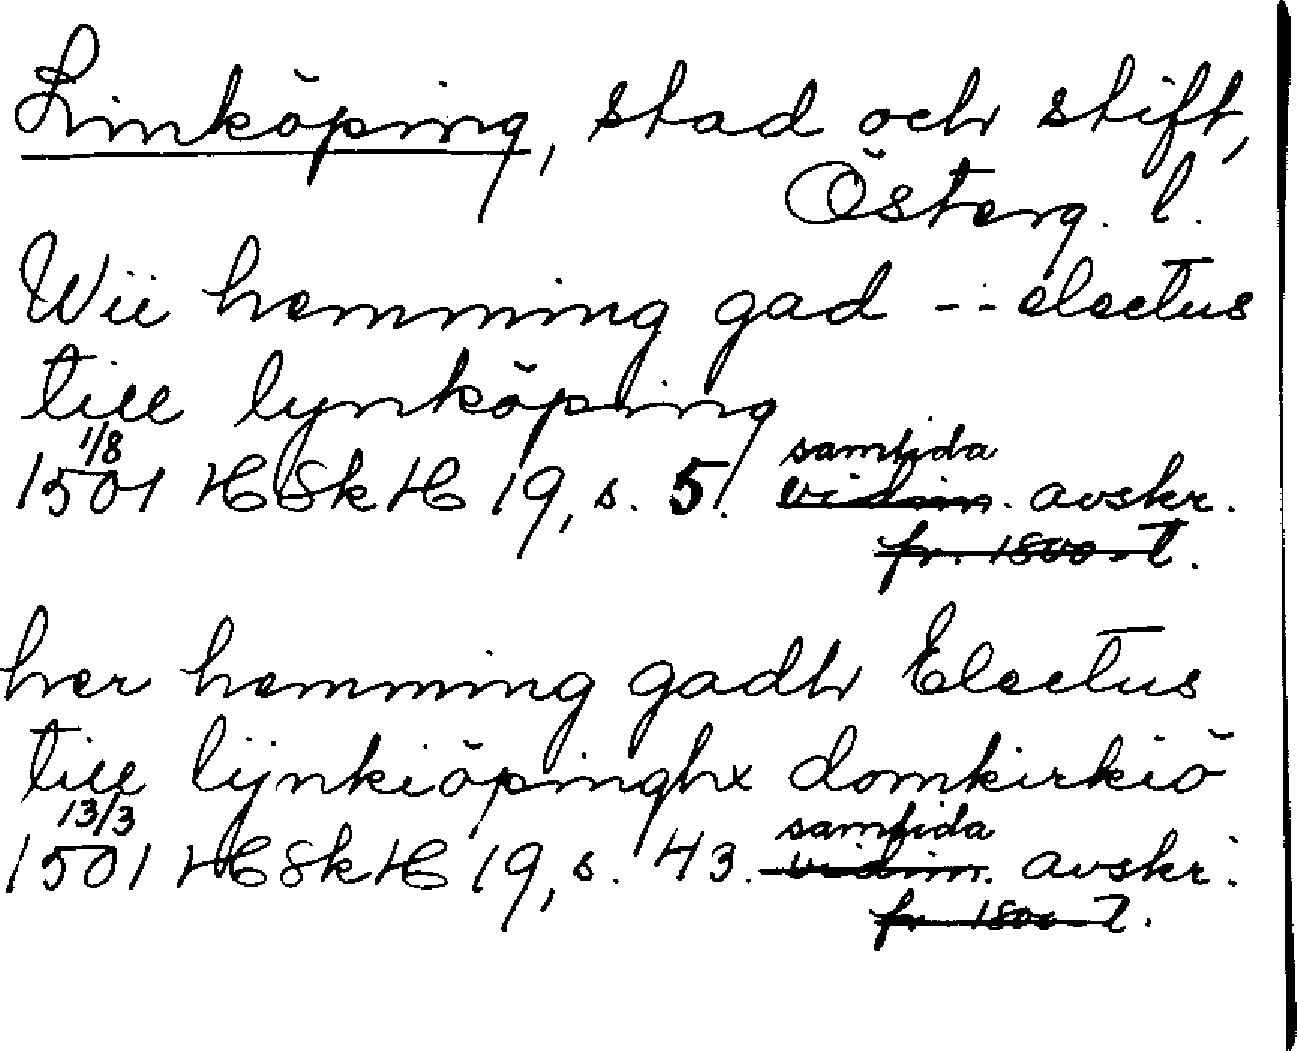 Linköping, stad och stift,
Österg. l.
Wii hemming gad -- electus
till lynköping
1/8
samtida
1501 HSkH 19, s. 5. vidim. avskr.
fr. 1800-t.
her hemming gadh Electus
till lijnkiöpinghx domkirkiö
13/3
samtida
1501 HSkH 19, s. 43. vidim. avskr.
fr 1800-t.